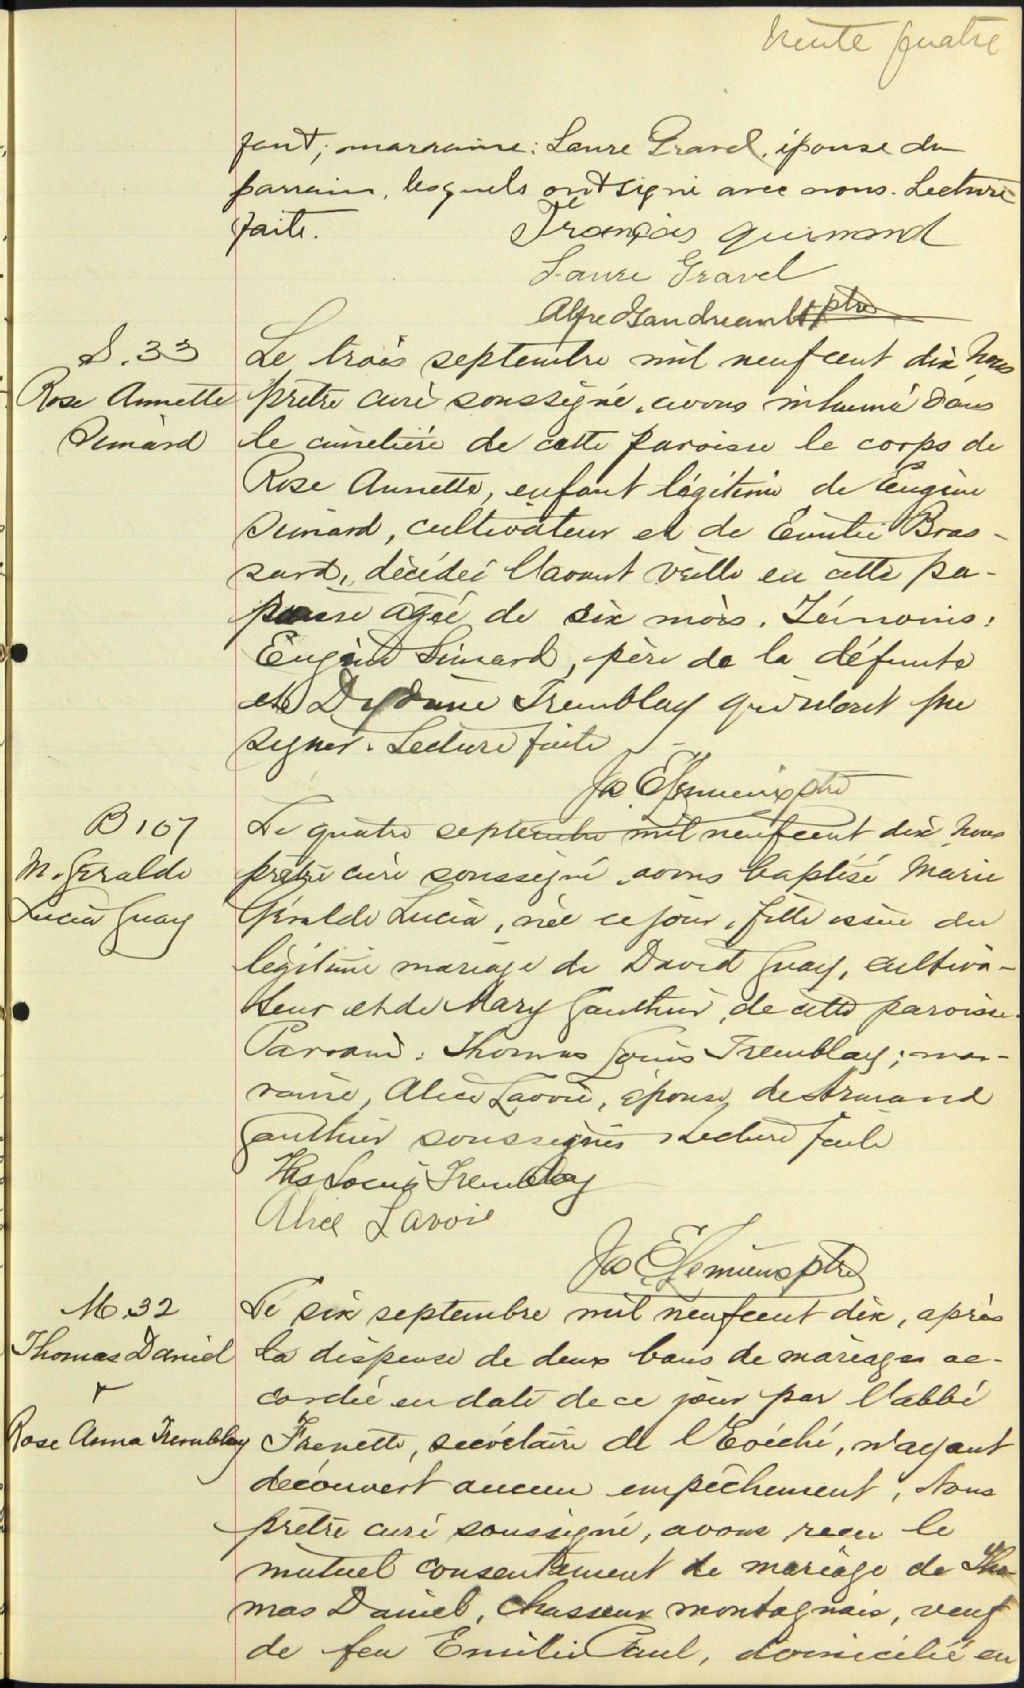 trente quatre
fant; marraine: Laure Gravel, épouse du
parrain, lesquels ont signé avec nous. Lecture
faite.
François Guimond
Laure Gravel
Alfred Gaudreault ptre
S. 33
Rose Annette
Simard
Le trois septembre mil neufcent dix, Nous
prêtre curé soussigné, avons inhumé dans
le cimetière de cette paroisse le corps de
Rose Annette, enfant légitime de Eugène
Simard, cultivateur et de Emilie Bras-
sard, décédée l'avant veille en cette pa-
roisse agée de six mois. Témoins,
Eugène Simard, père de la défunte
et Tremblay qui n'ont pu
signer. Lecture faite
Jos. E. Lemieux ptre
B 107
M. Géralde
Lucia Guay
Le quatre septembre mil neufcent dix, Nous
prêtre curé soussigné avons baptisé Marie
Géralde Lucia, née ce jour, fille issue du
légitime mariage de David Guay, cultiva-
teur et de Mary Gauthier, de cette paroisse.
Parrain: Thomas Louis Tremblay; mar-
raine, Alice Lavoie, épouse de Armand
Gauthier soussignés Lecture faite
Ths Louis Tremblay
Alice Lavoie
Jos E. Lemieux ptre
M. 32
Thomas Daniel
&
Rose Anna Tremblay
Le six septembre mil neufcent dix, après
la dispense de deux bans de mariages ac-
cordée en date de ce jour par l'abbé
Frenette, secrétaire de l'Evéché, n'ayant
découvert aucun empêchement, Nous
prêtre curé soussigné, avons reçu le
mutuel consentement de mariage de Tho-
mas Daniel, chasseur montagnais, veuf
de feu Emilie Paul, domicilié en